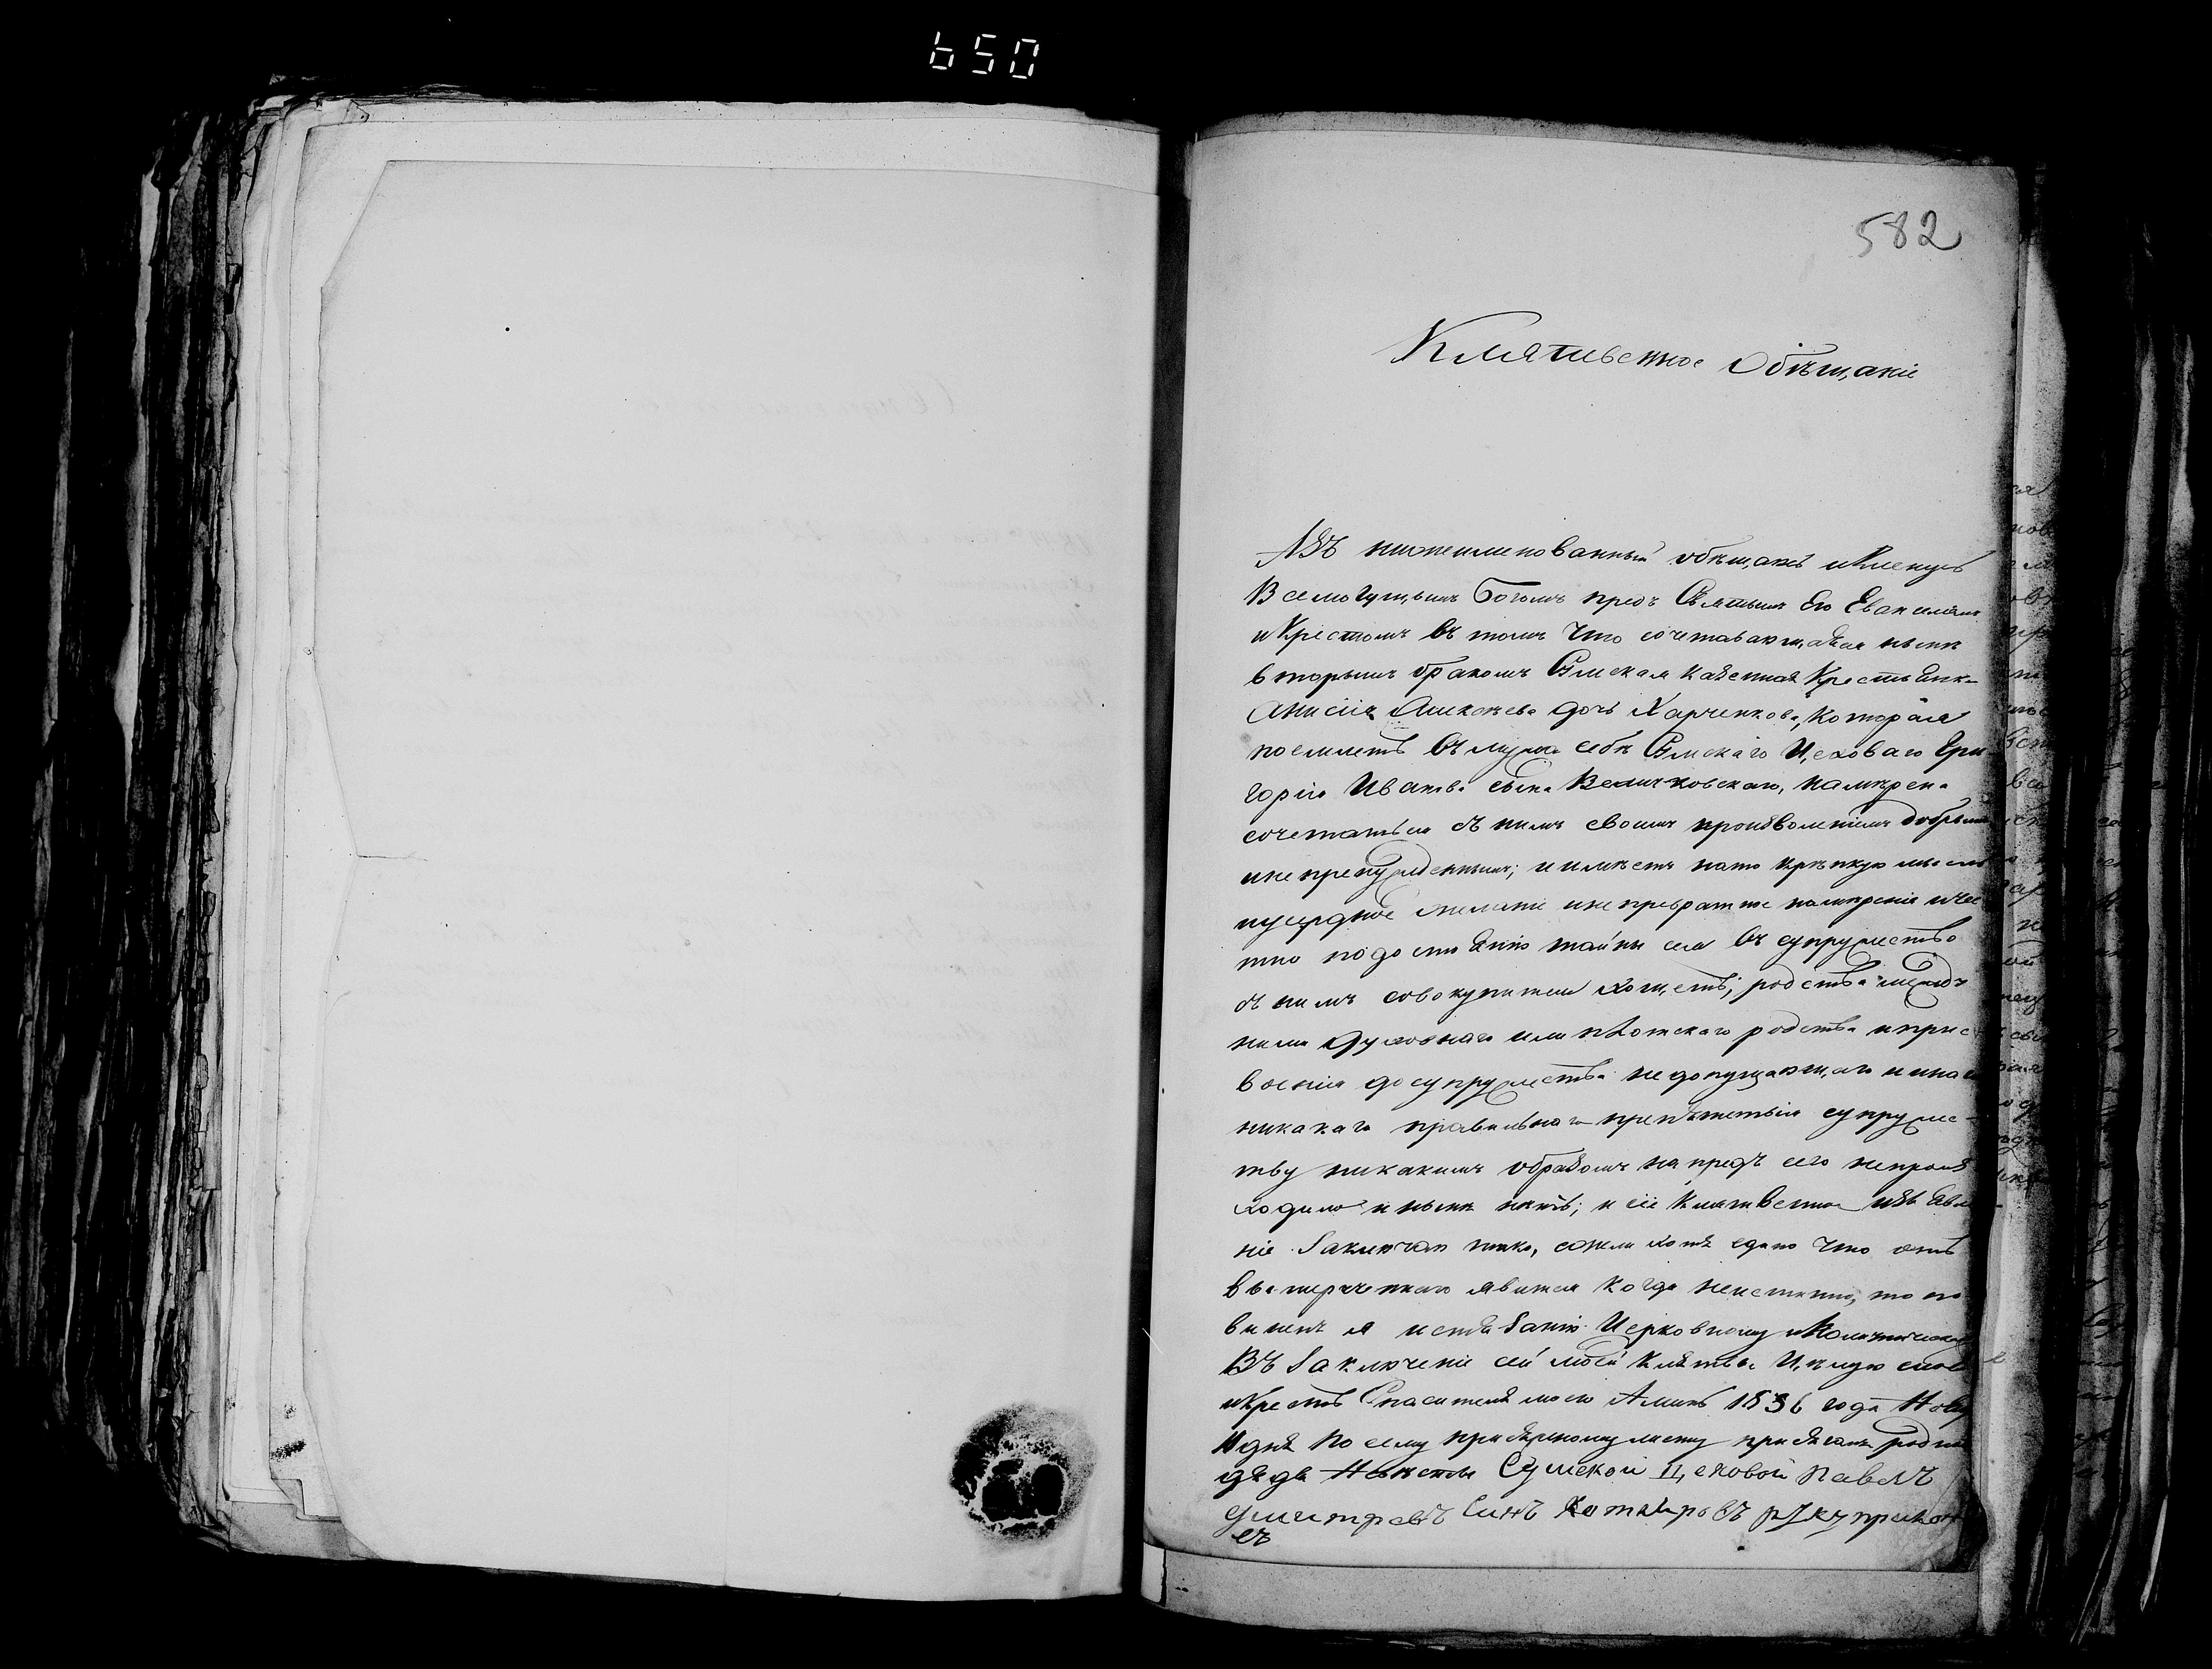 650
582
Клятвенное Обѣщаніе
Азъ нижеименованный обѣщаюсь и Кленусь
Всемогущымъ Богомъ предъ Святымъ Его Евангеліемъ
и Крестомъ въ томъ что сочетавающаяся нынѣ
вторымъ бракомъ Сумская казенная Крестьянк-
Анисія дочь Харченкова, которая
поемлетъ въ мужа себѣ Сумскаго Цеховаго Гри-
горія Иванова сына Величковскаго, намѣрена
сочетаться съ нимъ своимъ произволеніемъ добрым
и непренужденнымъ; и имѣетъ на то крѣпкую мысль
и усердное желаніе и непревратное намѣреніе и чес
тно по достоянію тайны сея въ супружество
съ нимъ совокупится хощетъ; родства между
ними духовнаго или плотскаго родства и прис
военія до супружества недопущающаго и инаго
никакаго правильнаго препятствія супруже-
тву никакимъ образомъ напредъ сего непроиз
ходило и нынѣ нѣтъ; и сіе клятвенное изъявле
ніе заключаю тако, ежели хотя едино что отъ
вышереченнаго явится когда неистинно, то по
виненъ я истязанію Церковному и Политическому
Въ заключеніе сей моей клятвы Цѣлую слова
и Крестъ Спасителя моего Аминь 1836 года Нояб
дня По сему присяжному листу присягалъ родной
дядя невѣсты Сумской Цеховой Павелъ
Дмитревъ Синъ руку прилож
илъ